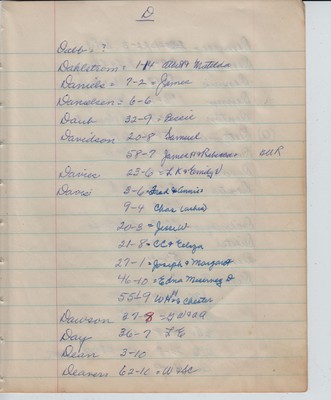 D
Dabb = ?
Dahlstrom = 1-14 Matilda
Daniels = 7-2 = James
Danielsen = 6-6
Daub 32-9 = Bessie
Davidson 20-8 Samuel
58-7 James H & Rebecca
Davies 23-6 = L K & Emily
Davis 3-6 = Fred & Annie
9-4 Chas
20-3 = Jesse W
21-8 = CC & Eliza
27-1 = Joseph & Margaret
46-10 = Edna Murray D
55-9 W H & Chester
Dawson 37-8
Day 36-7 L E
Dean 3-10
Deavers 62-10 = W & SC